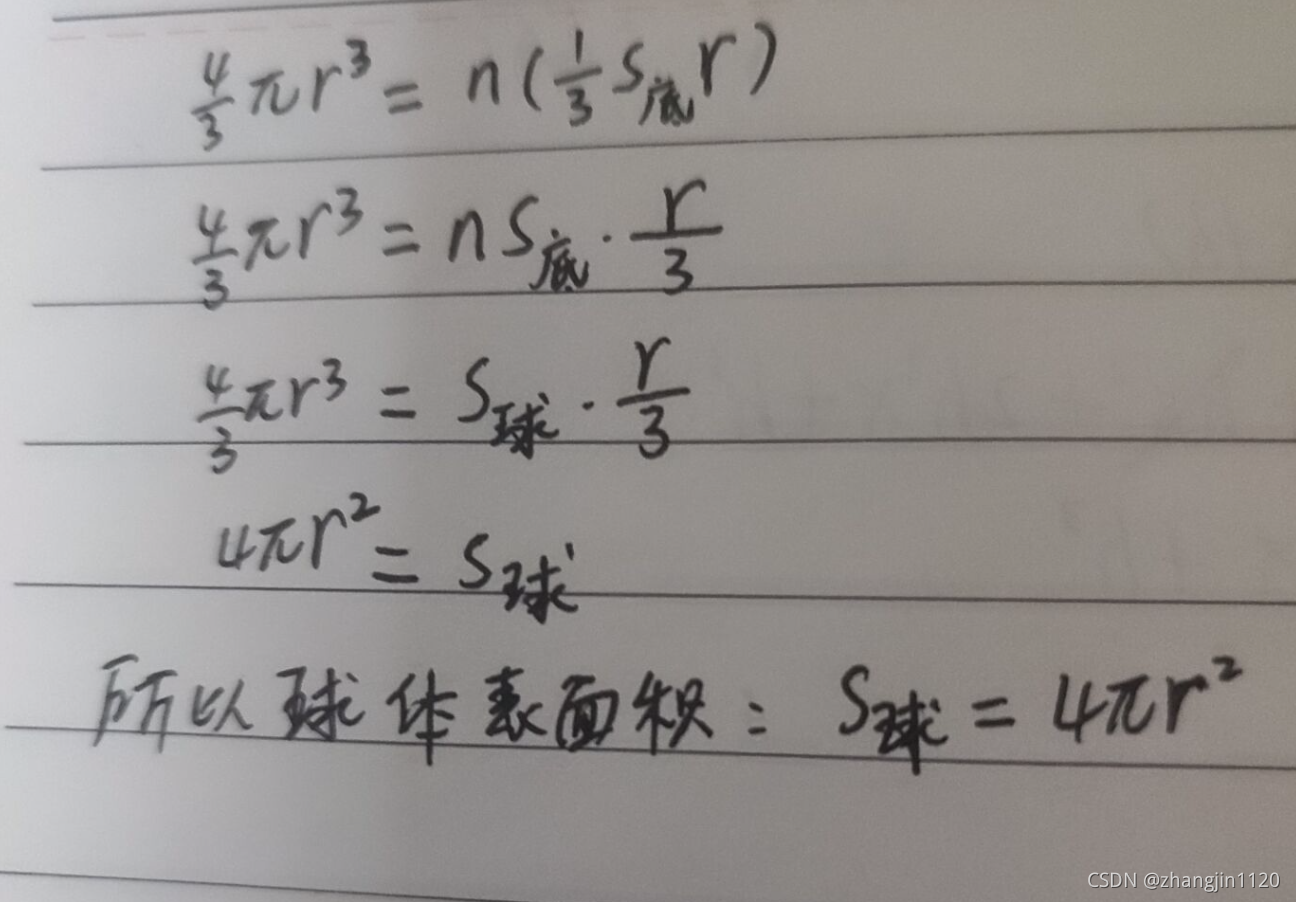 4/3 πr³ = n(1/3 S底 r)
4/3 πr³ = n S底 · r/3
4/3 πr³ = S球 · r/3
4πr² = S球
所以球体表面积: S球 = 4πr²
CSDN @zhangjin1120